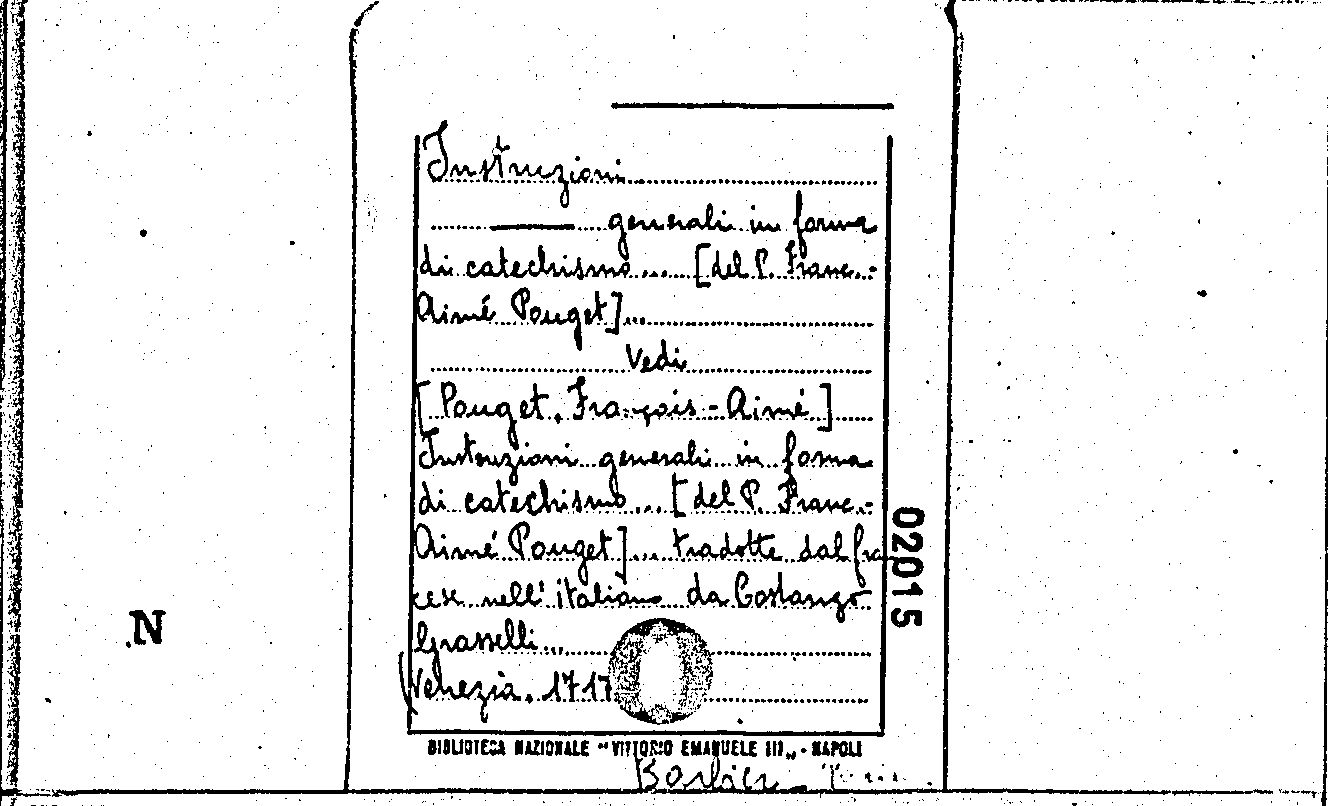 Instruzioni
generali in forma
di catechismo... [del P. Franc.-
Aimé Pouget]...
Vedi
[Pouget, François-Aimé]
Instruzioni generali in forma
di catechismo... [del P. Franc.-
Aimé Pouget]... tradotte dal fra
cese nell'italiano da Costanzo
Grasselli...
Venezia, 1717
02015
N
BIBLIOTECA NAZIONALE "VITTORIO EMANUELE III„ - NAPOLI
Barbier